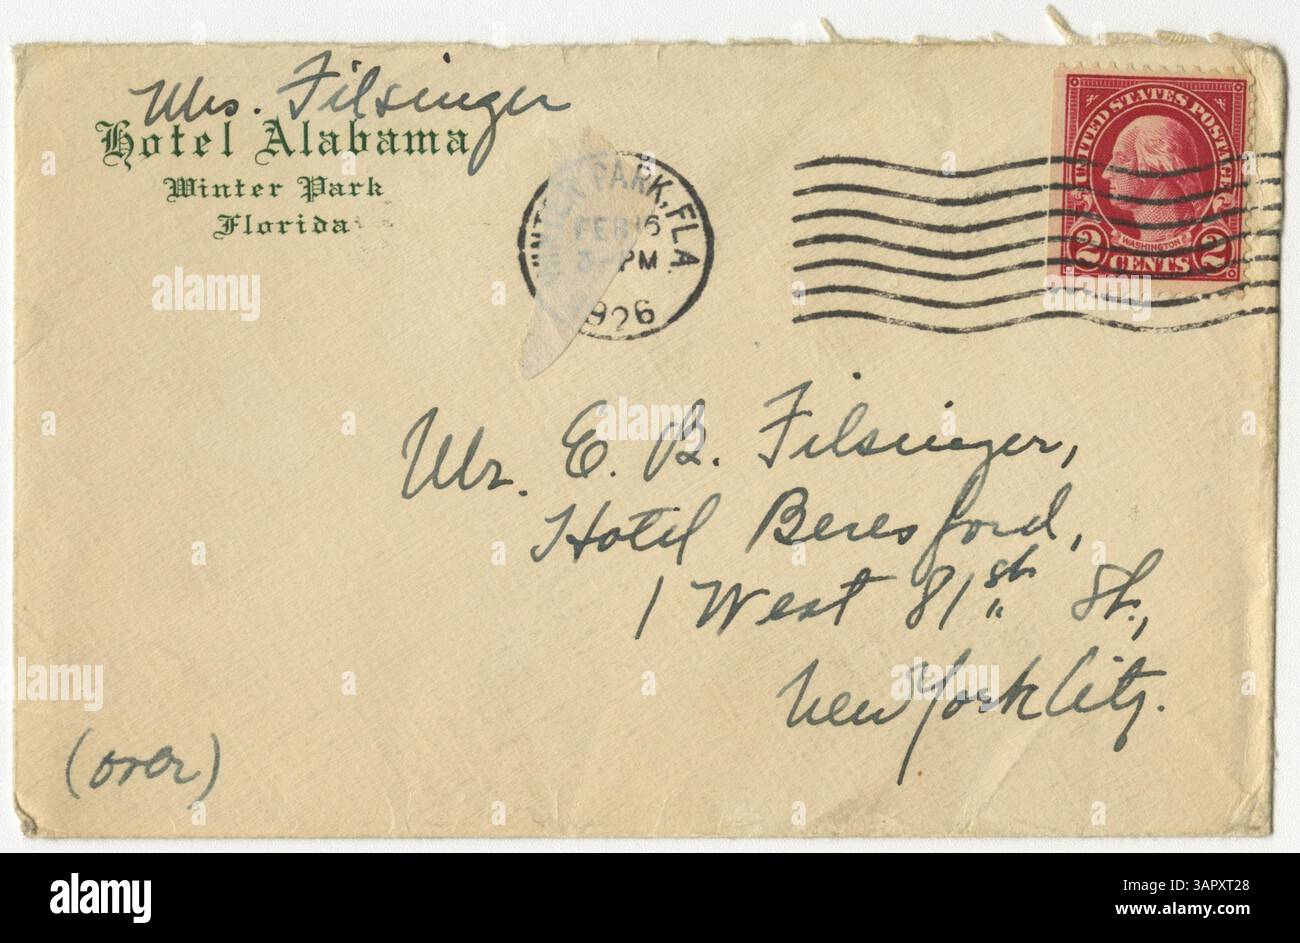 Mrs. Filsinger
Hotel Alabama
Winter Park
Florida
WINTER PARK, FLA.
FEB 16
3- PM
1926
UNITED STATES POSTAGE
WASHINGTON
2 CENTS 2
Mr. E. B. Filsinger,
Hotel Beresford,
1 West 81st St.,
New York City.
(over)
a alamy
alamy
Image ID: 3APXT28
www.alamy.com